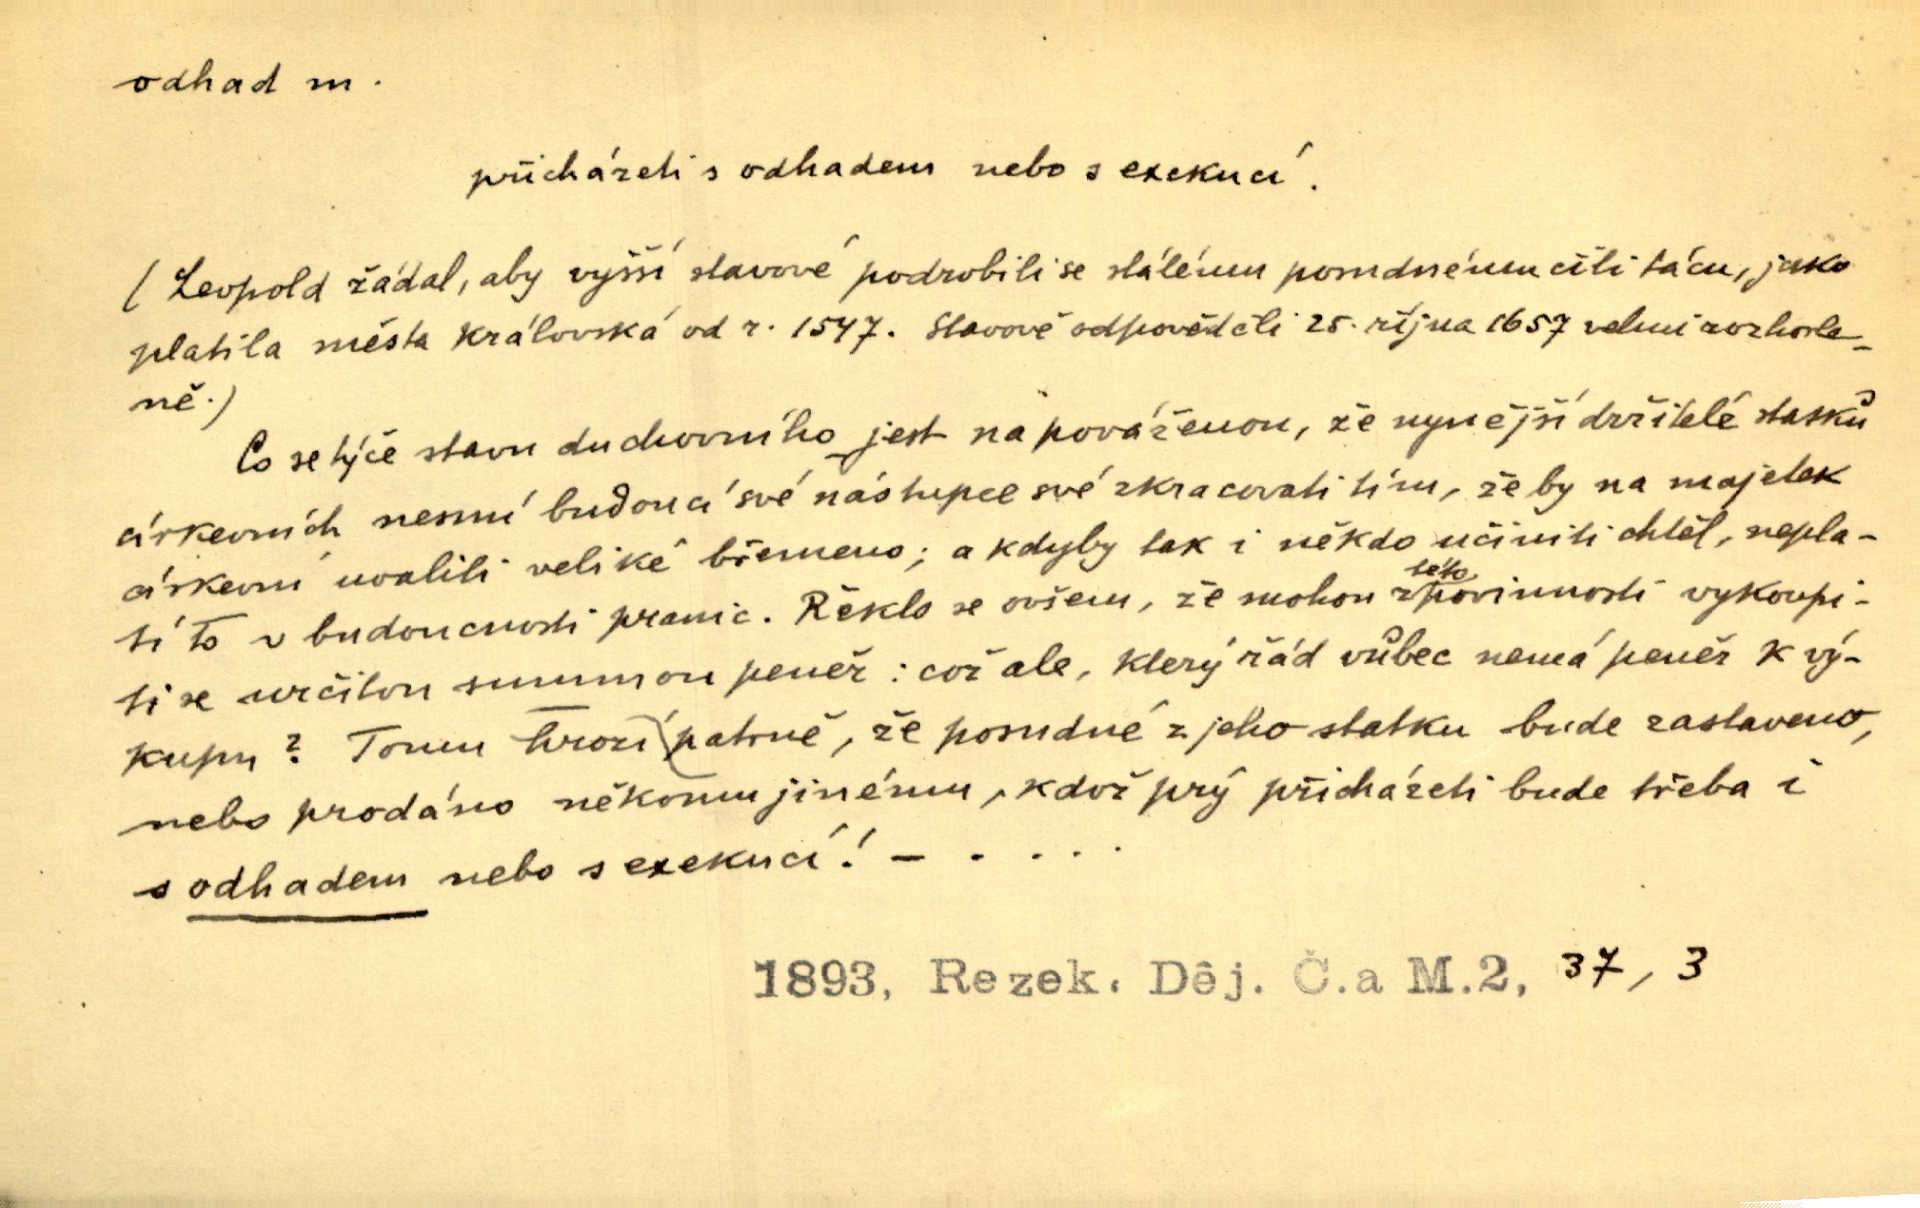 odhad m.
přicházeti s odhadem nebo s exekucí.
(Leopold žádal, aby vyšší stavové podrobili se stálému posudnému čili tácu, jako
platila města královská od r. 1547. Stavové odpověděli 25. října 1657 velmi rozhorle-
ně.)
Co se týče stavu duchovního jest na pováženou, že nynější držitelé statků
církevních nesmí budoucí své nástupce své zkracovati tím, že by na majetek
církevní uvalili veliké břemeno; a kdyby tak i někdo učiniti chtěl, nepla-
tí to v budoucnosti pranic. Řeklo se ovšem, že mohou z této povinnosti vykoupi-
ti se určitou summou peněz: což ale, který řád vůbec nemá peněz k vý-
kupu? Tomu hrozí patrně, že posudné z jeho statku bude zastaveno,
nebo prodáno někomu jinému, kdož prý přicházeti bude třeba i
s odhadem nebo s exekucí! – . . . .
1893, Rezek. Děj. Č. a M. 2, 37, 3